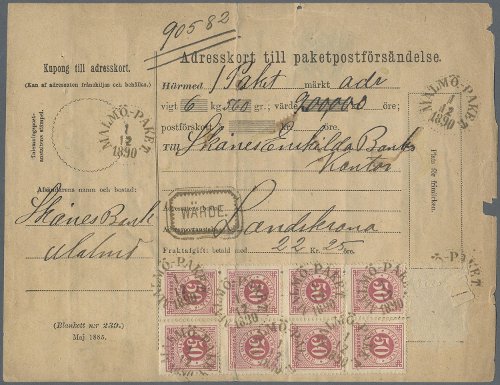 90582
Kupong till adresskort.
(Kan af adressaten frånskiljas och behållas.)
MALMÖ-PAKET.
1
12
1890
Afsändarens namn och bostad:
Skånes Bank
Malmö
(Blankett n:r 239.)
Maj. 1885.
Adresskort till paketpostförsändelse.
Härmed 1 Paket märkt adr
vigt 6 kg. 560 gr.; värde öre;
postförskott
Till Skånes Enskilda Banks
Kontor
WÄRDE.
Landskrona
Fraktafgift: betald med 22 Kr. 25 öre.
MALMÖ-PAKET.
1
12
1890
Plats för frimärken.
PAKET
50 50 50 50
50 50 50 50